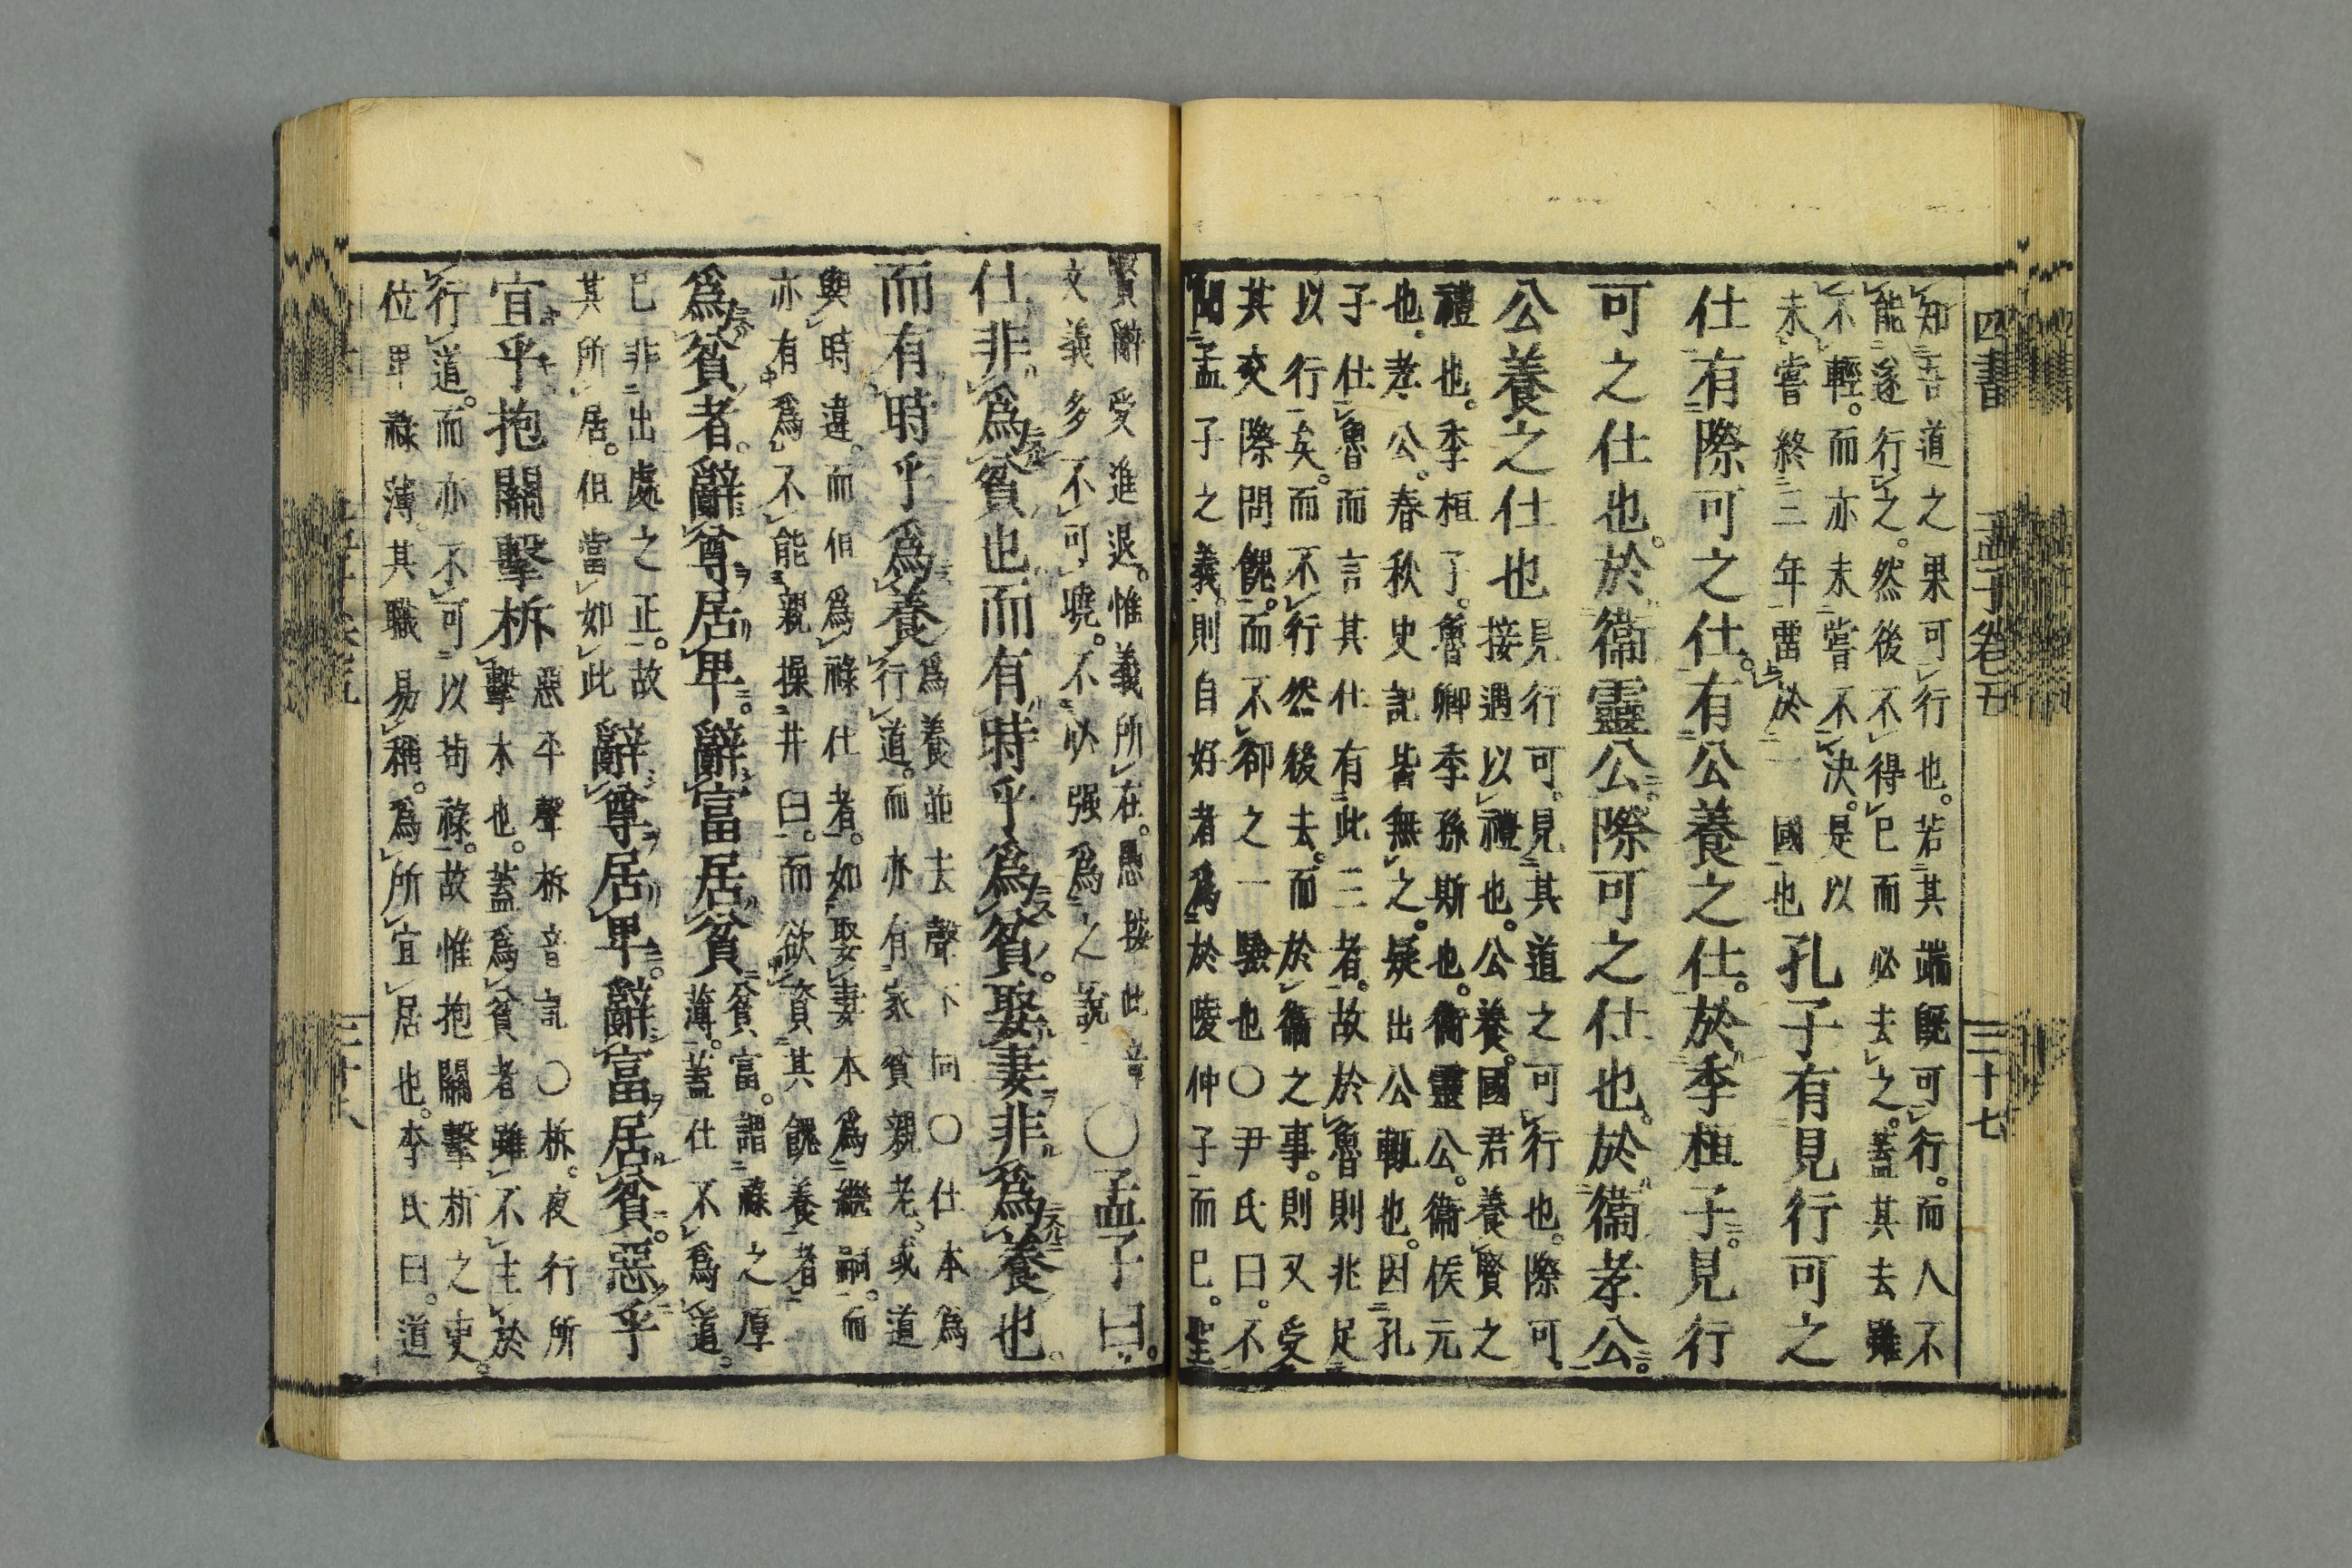 四書 孟子卷五 三十七
知吾道之果可行也。若其端既可行。而人不
能遂行之。然後不得已而必去之。蓋其去雖
不輕。而亦未嘗不決。是以
未嘗終三年畱於一國也
孔子有見行可之
仕有際可之仕。有公養之仕。於季桓子。見行
可之仕也。於衞靈公。際可之仕也。於衞孝公。
公養之仕也
見行可。見其道之可行也。際可。
接遇以禮也。公養。國君養賢之
禮也。季桓子。魯卿季孫斯也。衞靈公。衞侯元
也。孝公。春秋史記皆無之。疑出公輒也。因孔
子仕魯而言其仕有此三者。故於魯則兆足
以行矣。而不行然後去。而於衞之事。則又受
其交際問餽。而不卻之一驗也〇尹氏曰。不
聞孟子之義。則自好者爲於陵仲子而已。聖
賢辭受進退。惟義所在。愚按此章
文義多不可曉。不必强爲之說
〇孟子曰。
仕非爲貧也而有時乎爲貧。娶妻非爲養也。
而有時乎爲養
爲養並去聲下同〇仕本爲
行道。而亦有家貧親老。或道
與時違。而但爲祿仕者。如娶妻本爲繼嗣。而
亦有爲不能親操井臼。而欲資其餽養者
爲貧者。辭尊居卑。辭富居貧
貧富。謂祿之厚
薄。蓋仕不爲道。
已非出處之正。故
其所居。但當如此
辭尊居卑。辭富居貧。惡乎
宜乎抱關擊柝
惡平聲柝音託〇柝。夜行所
擊木也。蓋爲貧者雖不主於
行道。而亦不可以苟祿。故惟抱關擊柝之吏。
位卑祿薄。其職易稱。爲所宜居也。李氏曰。道